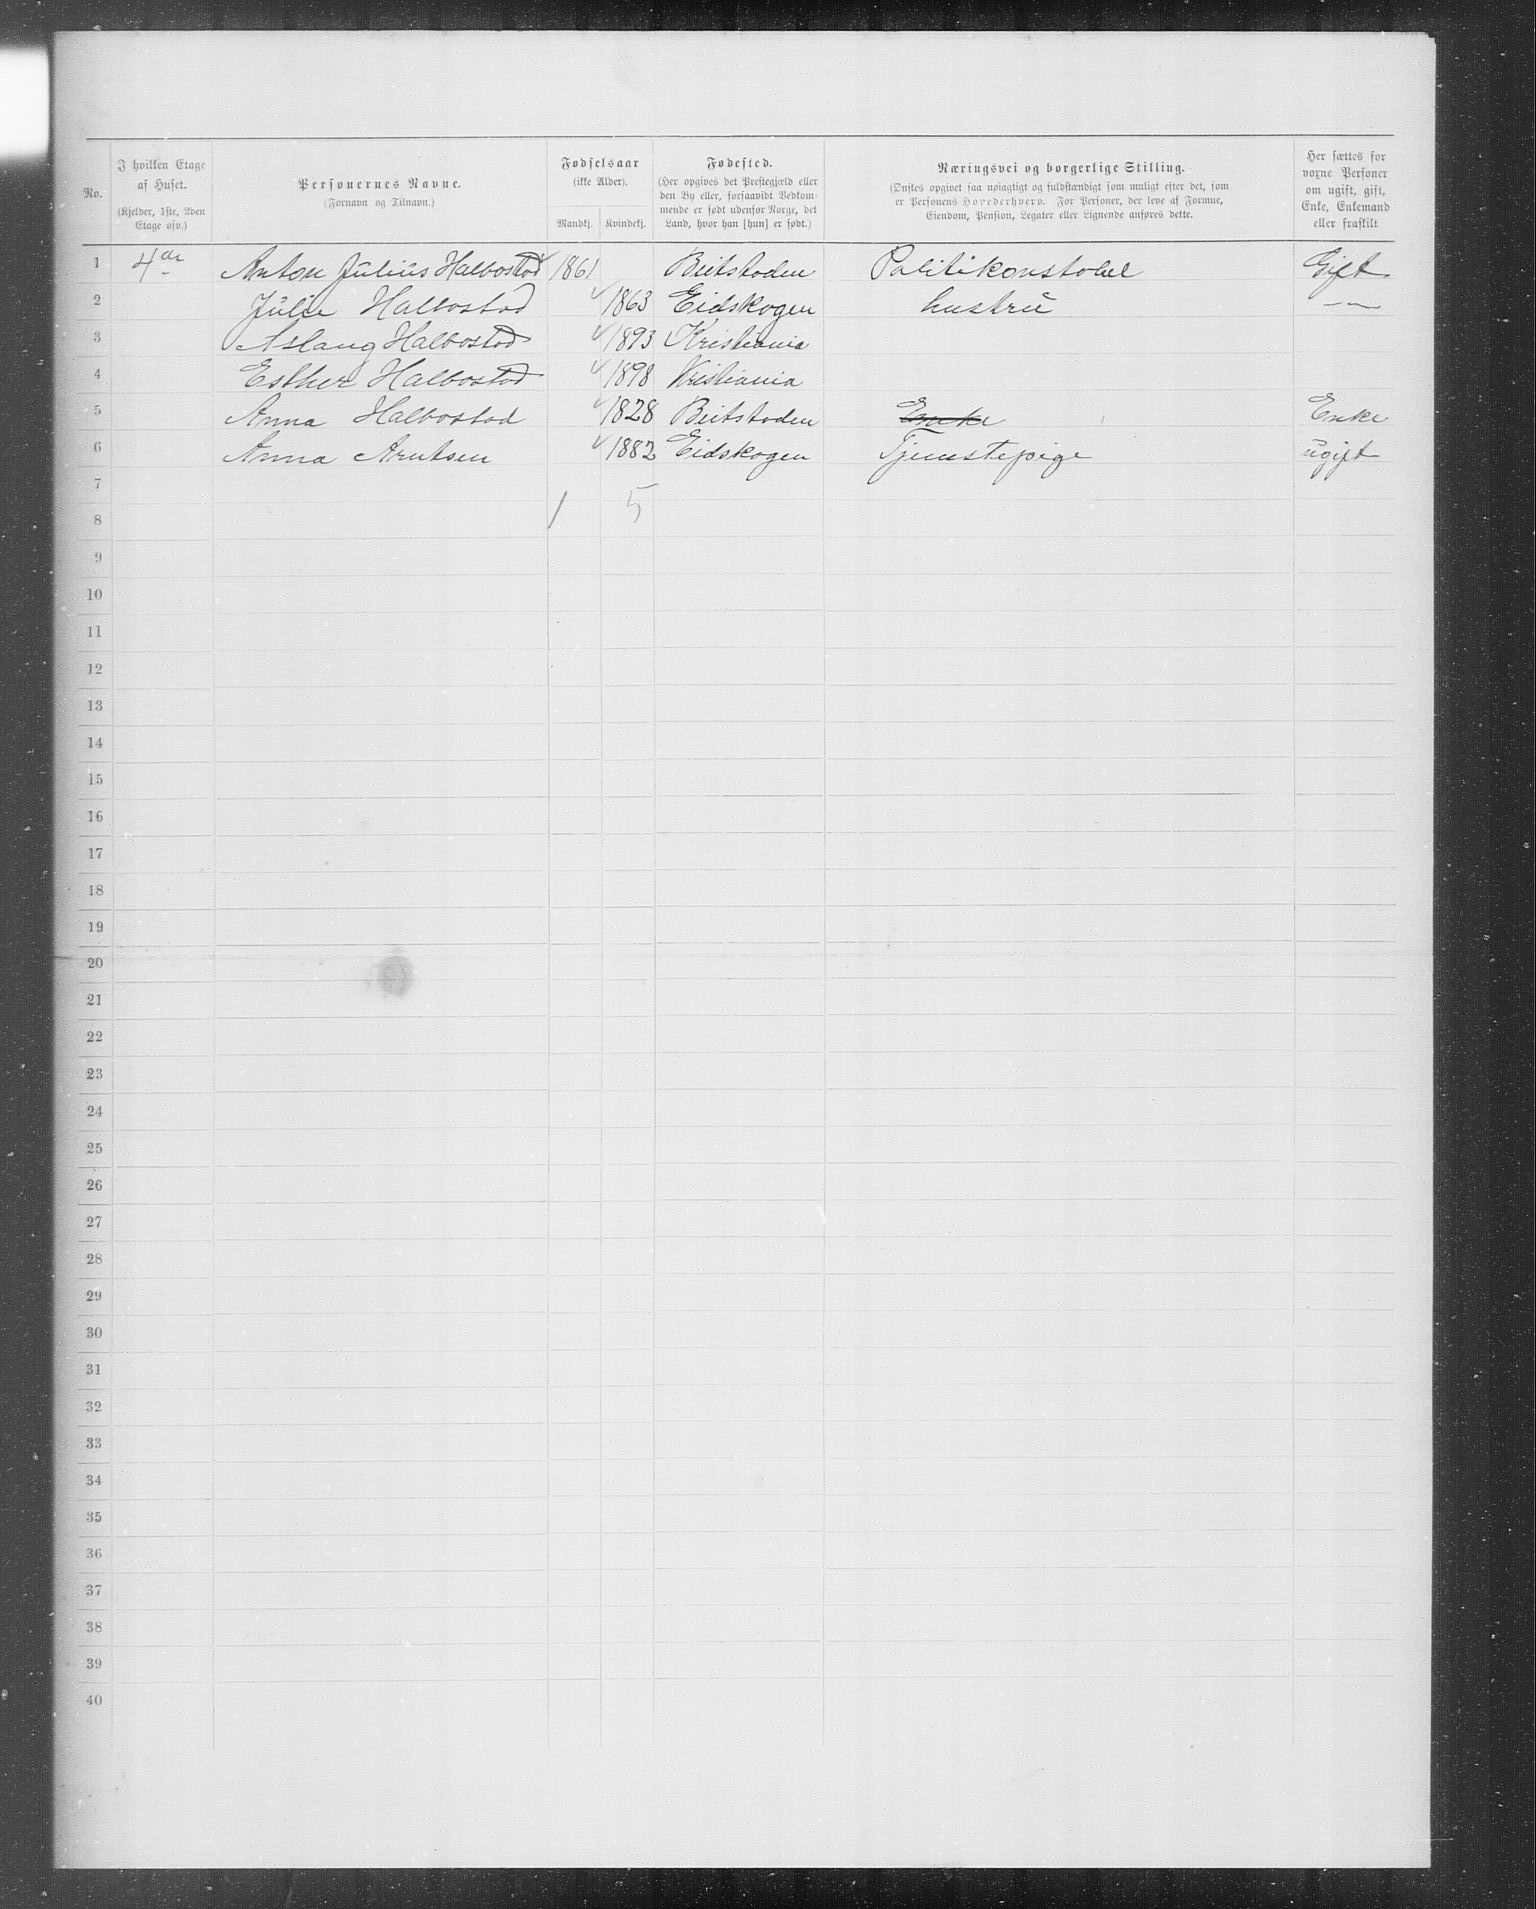 No.
I hvilken Etage af Huset.
(Kjelder, 1ste, 2den Etage osv.)
Personernes Navne.
(Fornavn og Tilnavn.)
Fødselsaar
(ikke Alder).
Mandkj. Kvindekj.
Fødested.
(Her opgives det Prestegjæld eller
den By eller, forsaavidt Vedkom-
mende er født udenfor Norge, det
Land, hvor han [hun] er født.)
Næringsvei og borgerlige Stilling.
(Ønskes opgivet saa nøiagtigt og fuldstændigt som muligt efter det, som
er Personens Hovederhverv. For Personer, der leve af Formue,
Eiendom, Pension, Legater eller Lignende anføres dette.
Her sættes for
voxne Personer
om ugift, gift,
Enke, Enkemand
eller fraskilt
1 4de Anton Julius Halbostad 1861 Beitstaden Politikonstabel Gift
2 Julie Halbostad 1863 Eidskogen hustru — —
3 Aslaug Halbostad 1893 Kristiania
4 Esther Halbostad 1898 Kristiania
5 Anna Halbostad 1828 Beitstaden Enke Enke
6 Anna Arntsen 1882 Eidskogen Tjenestepige ugift
7
1 5
8
9
10
11
12
13
14
15
16
17
18
19
20
21
22
23
24
25
26
27
28
29
30
31
32
33
34
35
36
37
38
39
40